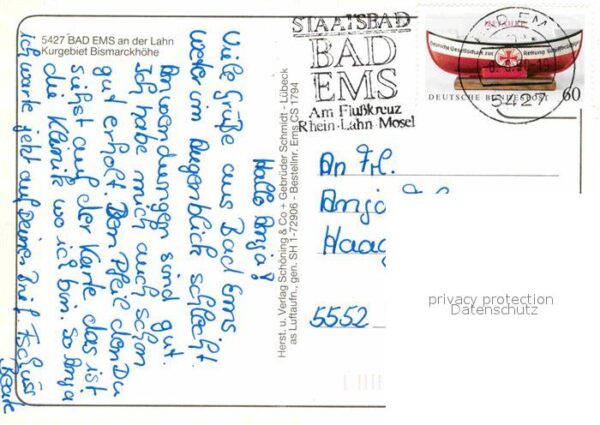 5427 BAD EMS an der Lahn
Kurgebiet Bismarckhöhe
Hallo Anja!
Viele Grüße aus Bad Ems.
Wetter im Augenblick schlecht.
Anwendungen sind gut.
Ich habe mich auch schon
gut erholt. Den Pfeil den Du
siehst auf der Karte, das ist
die Klinik wo ich bin. So Anja
ich warte jetzt auf Deinen Brief Tschüss
Beate
Herst. u. Verlag Schöning & Co + Gebrüder Schmidt - Lübeck
as Luftaufn., gen. SH 1-72906 - Bestellnr. Ems CS 1794
STAATSBAD
BAD
EMS
Am Flußkreuz
Rhein-Lahn-Mosel
5427
Deutsche Gesellschaft zur Rettung Schiffbrüchiger
DEUTSCHE BUNDESPOST 60
An Frl.
Anja
Haag
5552
privacy protection
Datenschutz